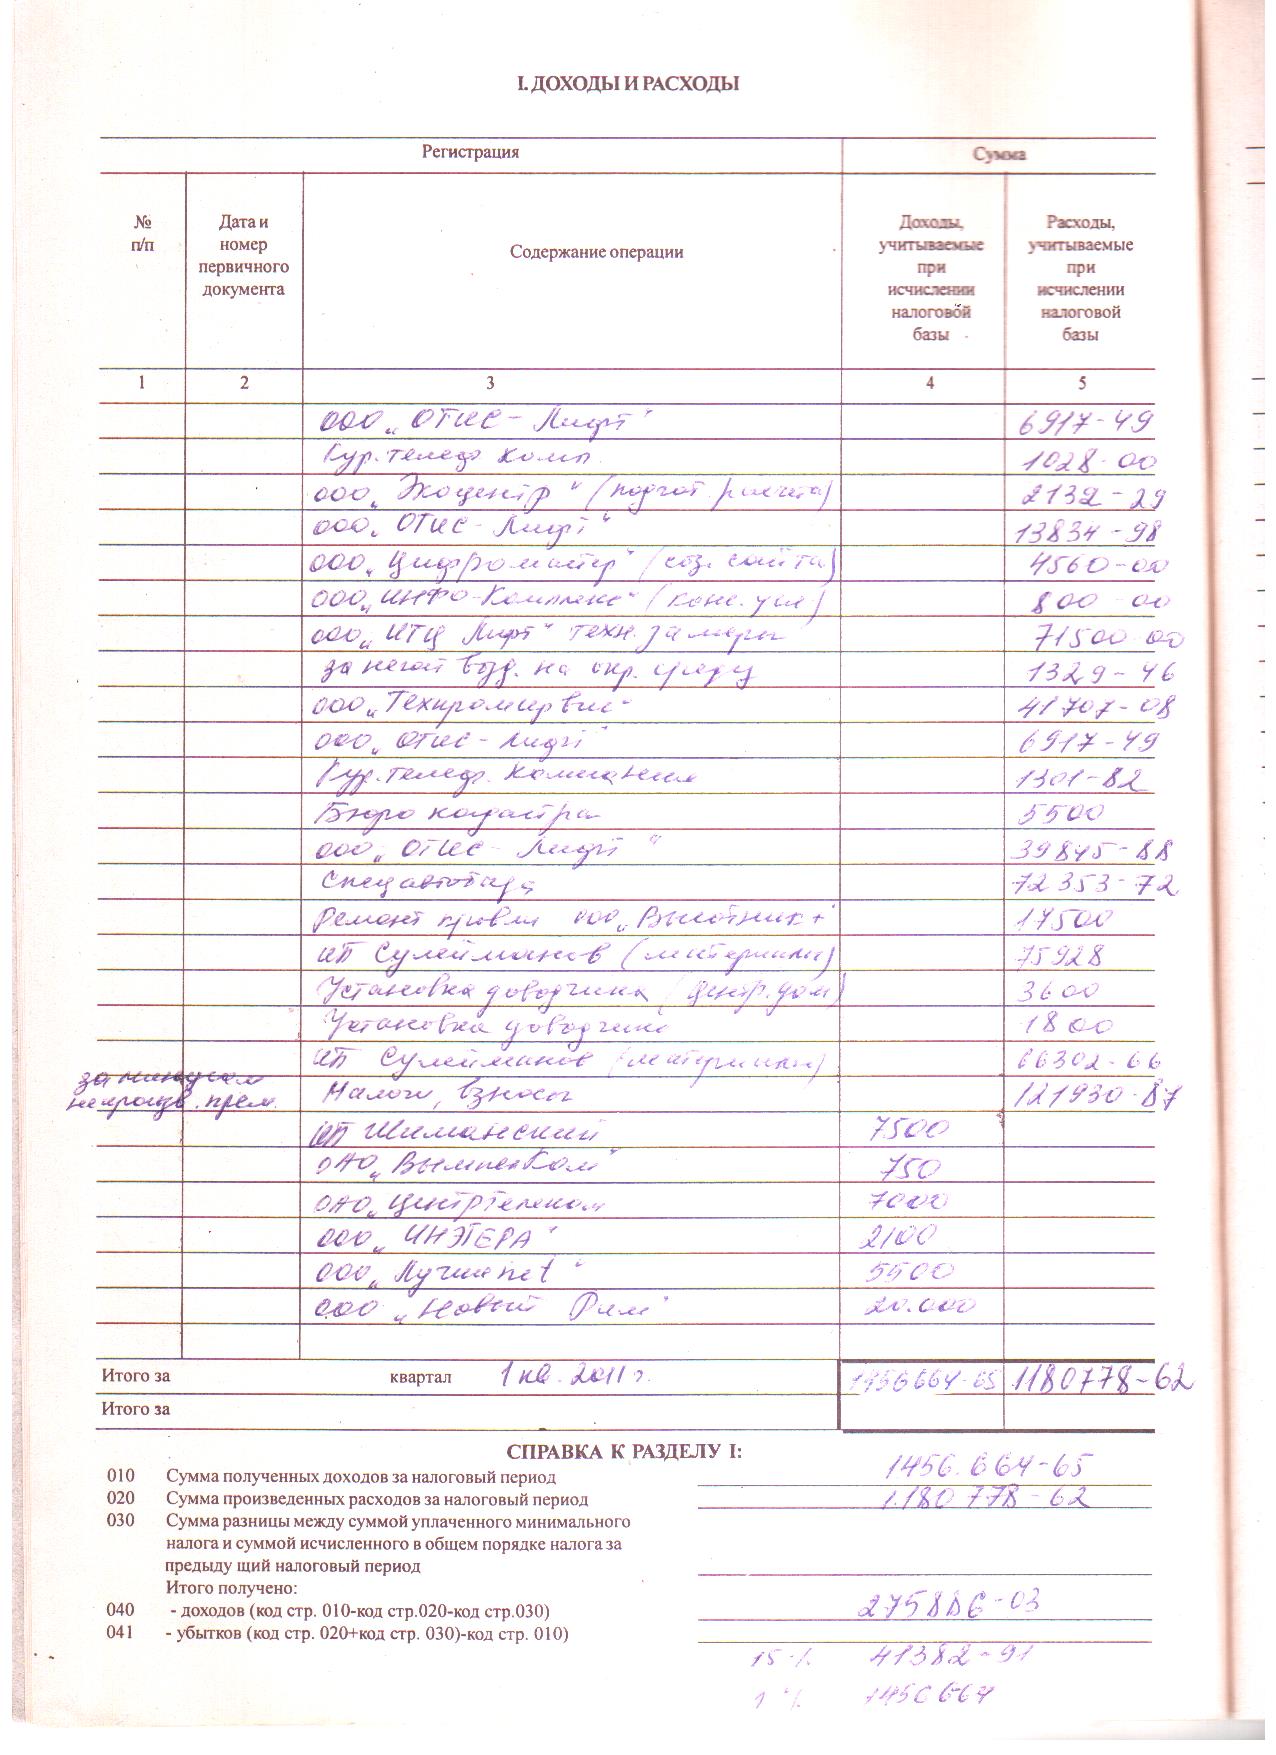 I. ДОХОДЫ И РАСХОДЫ
Регистрация Сумма
№ п/п
Дата и номер первичного документа
Содержание операции
Доходы, учитываемые при исчислении налоговой базы
Расходы, учитываемые при исчислении налоговой базы
1 2 3 4 5
ООО „ОТИС - Лифт" 6917-49
Кур. телеф комп. 1028-00
ООО „Экоцентр" (подгот. расчета) 2132-29
ООО „ОТИС - Лифт" 13834-98
ООО „Цифромастер" (соз. сайта) 4560-00
ООО „ИНФО-Комплекс" (конс. усл) 800-00
ООО „ИТЦ Лифт" техн. замеры 71500-00
за негат возд. на окр. среду 1329-46
ООО „Техпромсервис" 41707-08
ООО „ОТИС - Лифт" 6917-49
Кур. телеф. компания 1301-82
Бюро кадастра 5500
ООО „ОТИС - Лифт" 39845-88
Спецавтобаза 72353-72
Ремонт кровли ООО „Высотник+" 17500
ИП Сулейманов (материалы) 75928
Установка доводчика (центр. дом) 3600
Установка доводчика 1800
ИП Сулейманов (материалы) 66302-66
за минусом
непроизв. прем. Налоги, взносы 121930-87
ИП Шиманский 7500
ОАО „ВымпелКом" 750
ОАО „ЦентрТелеком 7000
ООО „ИНЭТЕРА" 2100
ООО „Лучшеnet" 5500
ООО „Новый Рим" 20.000
Итого за квартал 1 кв. 2011 г. 1456664-65 1180778-62
Итого за
СПРАВКА К РАЗДЕЛУ I:
010 Сумма полученных доходов за налоговый период 1456.664-65
020 Сумма произведенных расходов за налоговый период 1180778-62
030 Сумма разницы между суммой уплаченного минимального
налога и суммой исчисленного в общем порядке налога за
предыду щий налоговый период
Итого получено:
040 - доходов (код стр. 010-код стр.020-код стр.030) 275886-03
041 - убытков (код стр. 020+код стр. 030)-код стр. 010)
15% 41382-91
1% 1456664